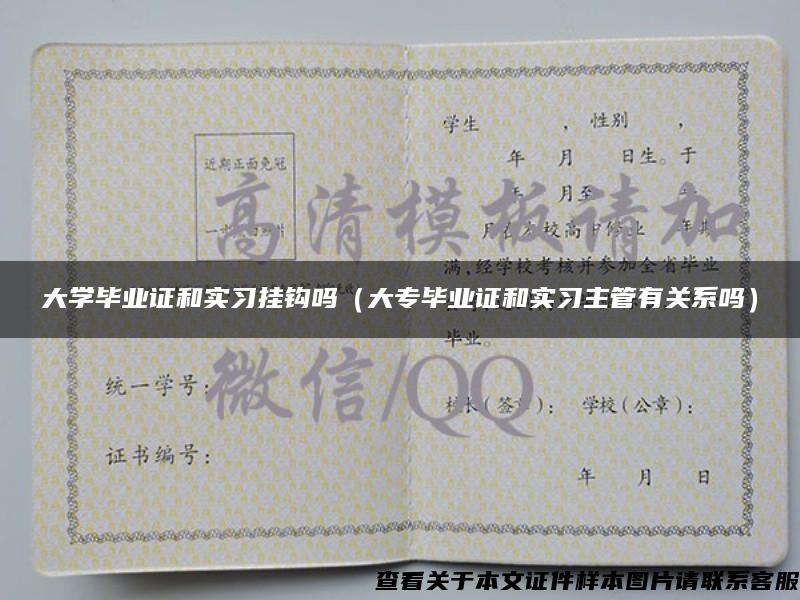 近期正面免冠
学生 , 性别 ,
年 月 日生。于
月至
高清模板请加
满,经学校考核并参加全省毕业
大学毕业证和实习挂钩吗（大专毕业证和实习主管有关系吗）
毕业。
微信/QQ
统一学号：
校长（签章）： 学校（公章）：
证书编号：
年 月 日
查看关于本文证件样本图片请联系客服